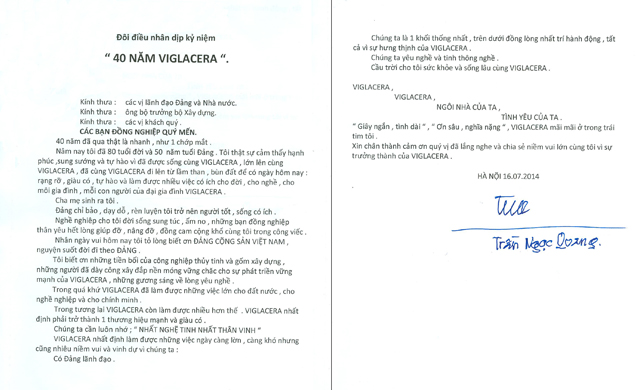 Đôi điều nhân dịp kỷ niệm
“ 40 NĂM VIGLACERA “.
Kính thưa : các vị lãnh đạo Đảng và Nhà nước.
Kính thưa : ông bộ trưởng bộ Xây dựng.
Kính thưa : các vị khách quý .
CÁC BẠN ĐỒNG NGHIỆP QUÝ MẾN.
40 năm đã qua thật là nhanh , như 1 chớp mắt .
Năm nay tôi đã 80 tuổi đời và 50 năm tuổi Đảng . Tôi thật sự cảm thấy hạnh
phúc ,sung sướng và tự hào vì đã được sống cùng VIGLACERA , lớn lên cùng
VIGLACERA , đã cùng VIGLACERA đi lên từ lầm than , bùn đất để có ngày hôm nay :
rạng rỡ , giàu có , tự hào và làm được nhiều việc có ích cho đời , cho nghề , cho
mỗi gia đình , mỗi con người của đại gia đình VIGLACERA .
Cha mẹ sinh ra tôi .
Đảng chỉ bảo , dạy dỗ , rèn luyện tôi trở nên người tốt , sống có ích .
Nghề nghiệp cho tôi đời sống sung túc , ấm no , những bạn đồng nghiệp
thân yêu hết lòng giúp đỡ , nâng đỡ , đồng cam cộng khổ cùng tôi trong công việc .
Nhân ngày vui hôm nay tôi tỏ lòng biết ơn ĐẢNG CỘNG SẢN VIỆT NAM ,
nguyện suốt đời đi theo ĐẢNG .
Tôi biết ơn những tiền bối của công nghiệp thủy tinh và gốm xây dựng ,
những người đã dày công xây đắp nền móng vững chắc cho sự phát triển vững
mạnh của VIGLACERA , những gương sáng về lòng yêu nghề .
Trong quá khứ VIGLACERA đã làm được những việc lớn cho đất nước , cho
nghề nghiệp và cho chính mình .
Trong tương lai VIGLACERA còn làm được nhiều hơn thế . VIGLACERA nhất
định phải trở thành 1 thương hiệu mạnh và giàu có .
Chúng ta cần luôn nhớ ; “ NHẤT NGHỆ TINH NHẤT THÂN VINH “
VIGLACERA nhất định làm được những việc ngày càng lớn , càng khó nhưng
cũng nhiều niềm vui và vinh dự vì chúng ta :
Có Đảng lãnh đạo .
Chúng ta là 1 khối thống nhất , trên dưới đồng lòng nhất trí hành động , tất
cả vì sự hưng thịnh của VIGLACERA .
Chúng ta yêu nghề và tinh thông nghề .
Cầu trời cho tôi sức khỏe và sống lâu cùng VIGLACERA .
VIGLACERA ,
VIGLACERA ,
NGÔI NHÀ CỦA TA ,
TÌNH YÊU CỦA TA .
“ Giấy ngắn , tình dài “ , “ Ơn sâu , nghĩa nặng “ , VIGLACERA mãi mãi ở trong trái
tim tôi .
Xin chân thành cảm ơn quý vị đã lắng nghe và chia sẻ niềm vui lớn cùng tôi vì sự
trưởng thành của VIGLACERA .
HÀ NỘI 16.07.2014
Trần Ngọc Quang.